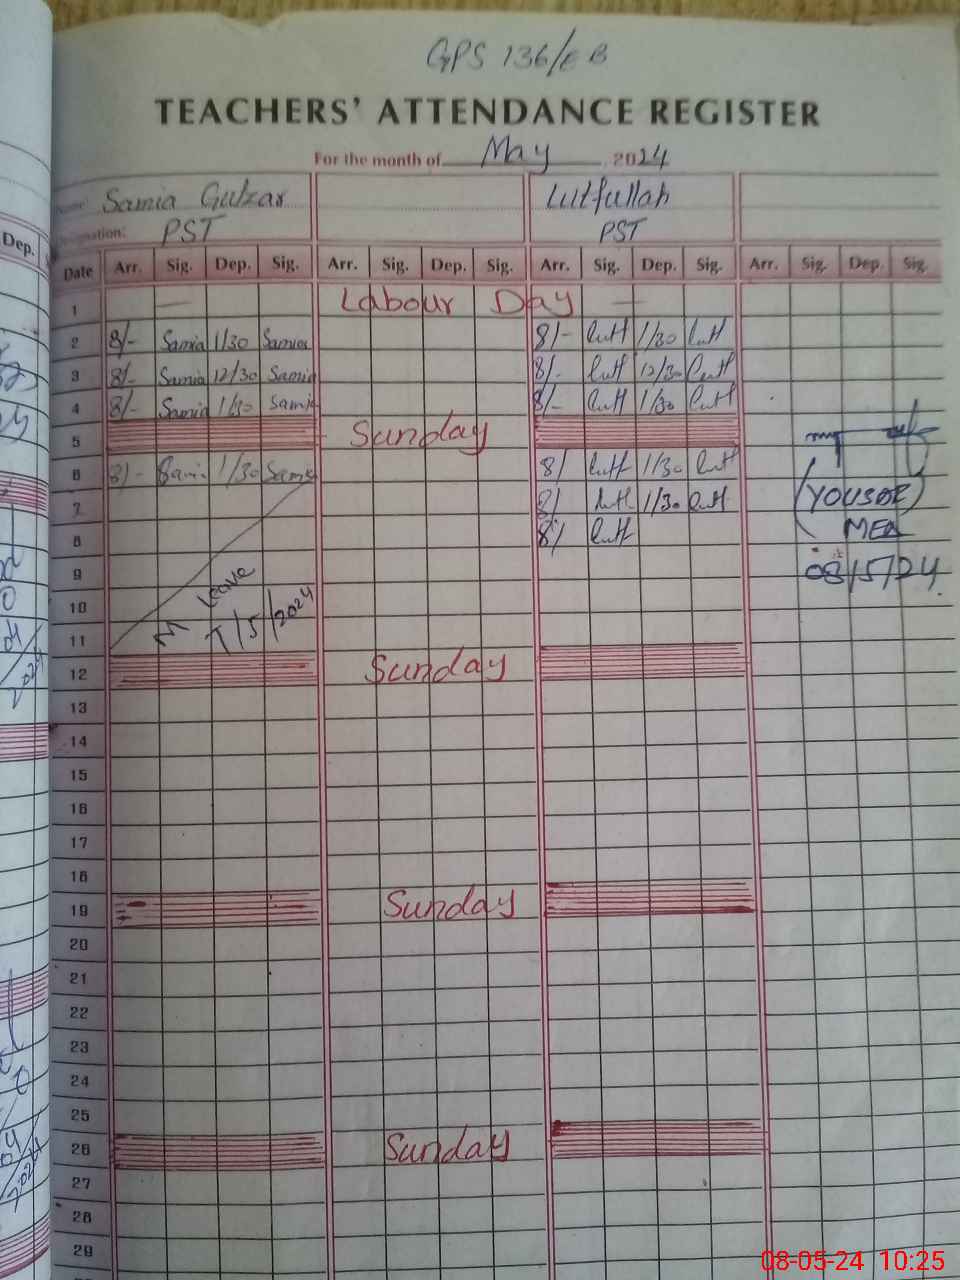 GPS 136/EB
TEACHERS' ATTENDANCE REGISTER
For the month of May 2024
Name: Samia Gulzar Lutfullah
Designation: PST PST
Dep.
Date Arr. Sig. Dep. Sig. Arr. Sig. Dep. Sig. Arr. Sig. Dep. Sig. Arr. Sig. Dep. Sig.
1 — Labour Day —
2 8/- Samia 1/30 Samia 8/- Lutf 1/30 Lutf
3 8/- Samia 12/30 Samia 8/- Lutf 12/30 Lutf
4 8/- Samia 1/30 Samia 8/- Lutf 1/30 Lutf
5 Sunday
6 8/- Samia 1/30 Samia 8/ Lutf 1/30 Lutf
7 8/ Lutf 1/30 Lutf
(YOUSAF)
8 8/ Lutf
MEA
9 08/5/24
10
11
M Leave
7/5/2024
12 Sunday
13
14
15
16
17
18
19 Sunday
20
21
22
23
24
25
26 Sunday
27
28
29
08-05-24 10:25